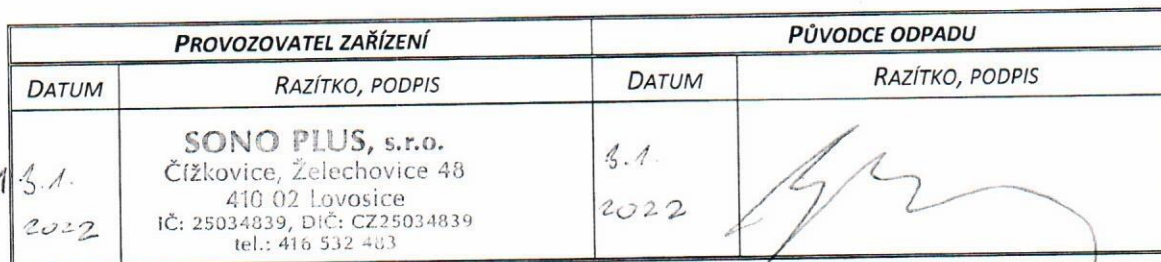 PROVOZOVATEL ZAŘÍZENÍ PŮVODCE ODPADU
DATUM RAZÍTKO, PODPIS DATUM RAZÍTKO, PODPIS
SONO PLUS, s.r.o.
Čížkovice, Želechovice 48
3.1. 3.1.
410 02 Lovosice
2022 2022
IČ: 25034839, DIČ: CZ25034839
tel.: 416 532 483